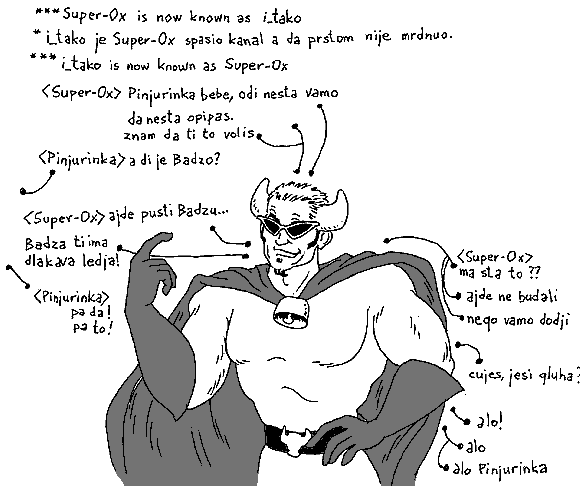 ***Super-Ox is now known as i_tako
* i_tako je Super-Ox spasio kanal a da prstom nije mrdnuo.
*** i_tako is now known as Super-Ox
<Super-Ox> Pinjurinka bebe, odi nesta vamo
da nesta opipas.
znam da ti to volis
<Pinjurinka> a di je Badzo?
<Super-Ox> ajde pusti Badzu...
Badza ti ima
dlakava ledja!
<Pinjurinka>
pa da!
pa to!
<Super-Ox>
ma sta to ??
ajde ne budali
nego vamo dodji
cujes, jesi gluha?
alo!
alo
alo Pinjurinka